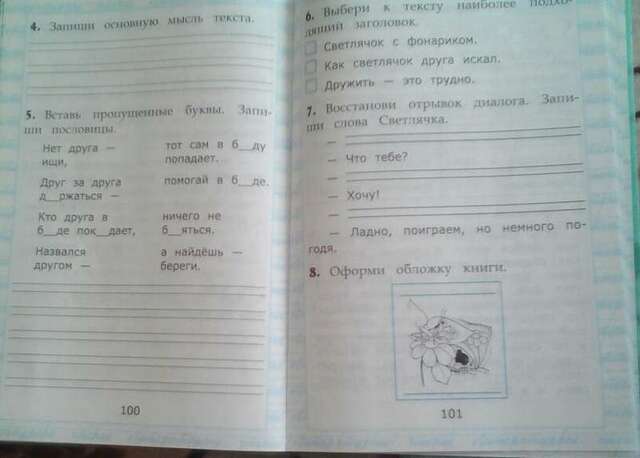 4. Запиши основную мысль текста.
5. Вставь пропущенные буквы. Запи-
ши пословицы.
Нет друга — тот сам в б__ду
ищи, попадает.
Друг за друга помогай в б__де.
д__ржаться —
Кто друга в ничего не
б__де пок__дает, б__яться.
Назвался а найдёшь —
другом — береги.
100
6. Выбери к тексту наиболее подхо-
дящий заголовок.
Светлячок с фонариком.
Как светлячок друга искал.
Дружить — это трудно.
7. Восстанови отрывок диалога. Запи-
ши слова Светлячка.
—
— Что тебе?
—
— Хочу!
—
— Ладно, поиграем, но немного по-
годя.
8. Оформи обложку книги.
101